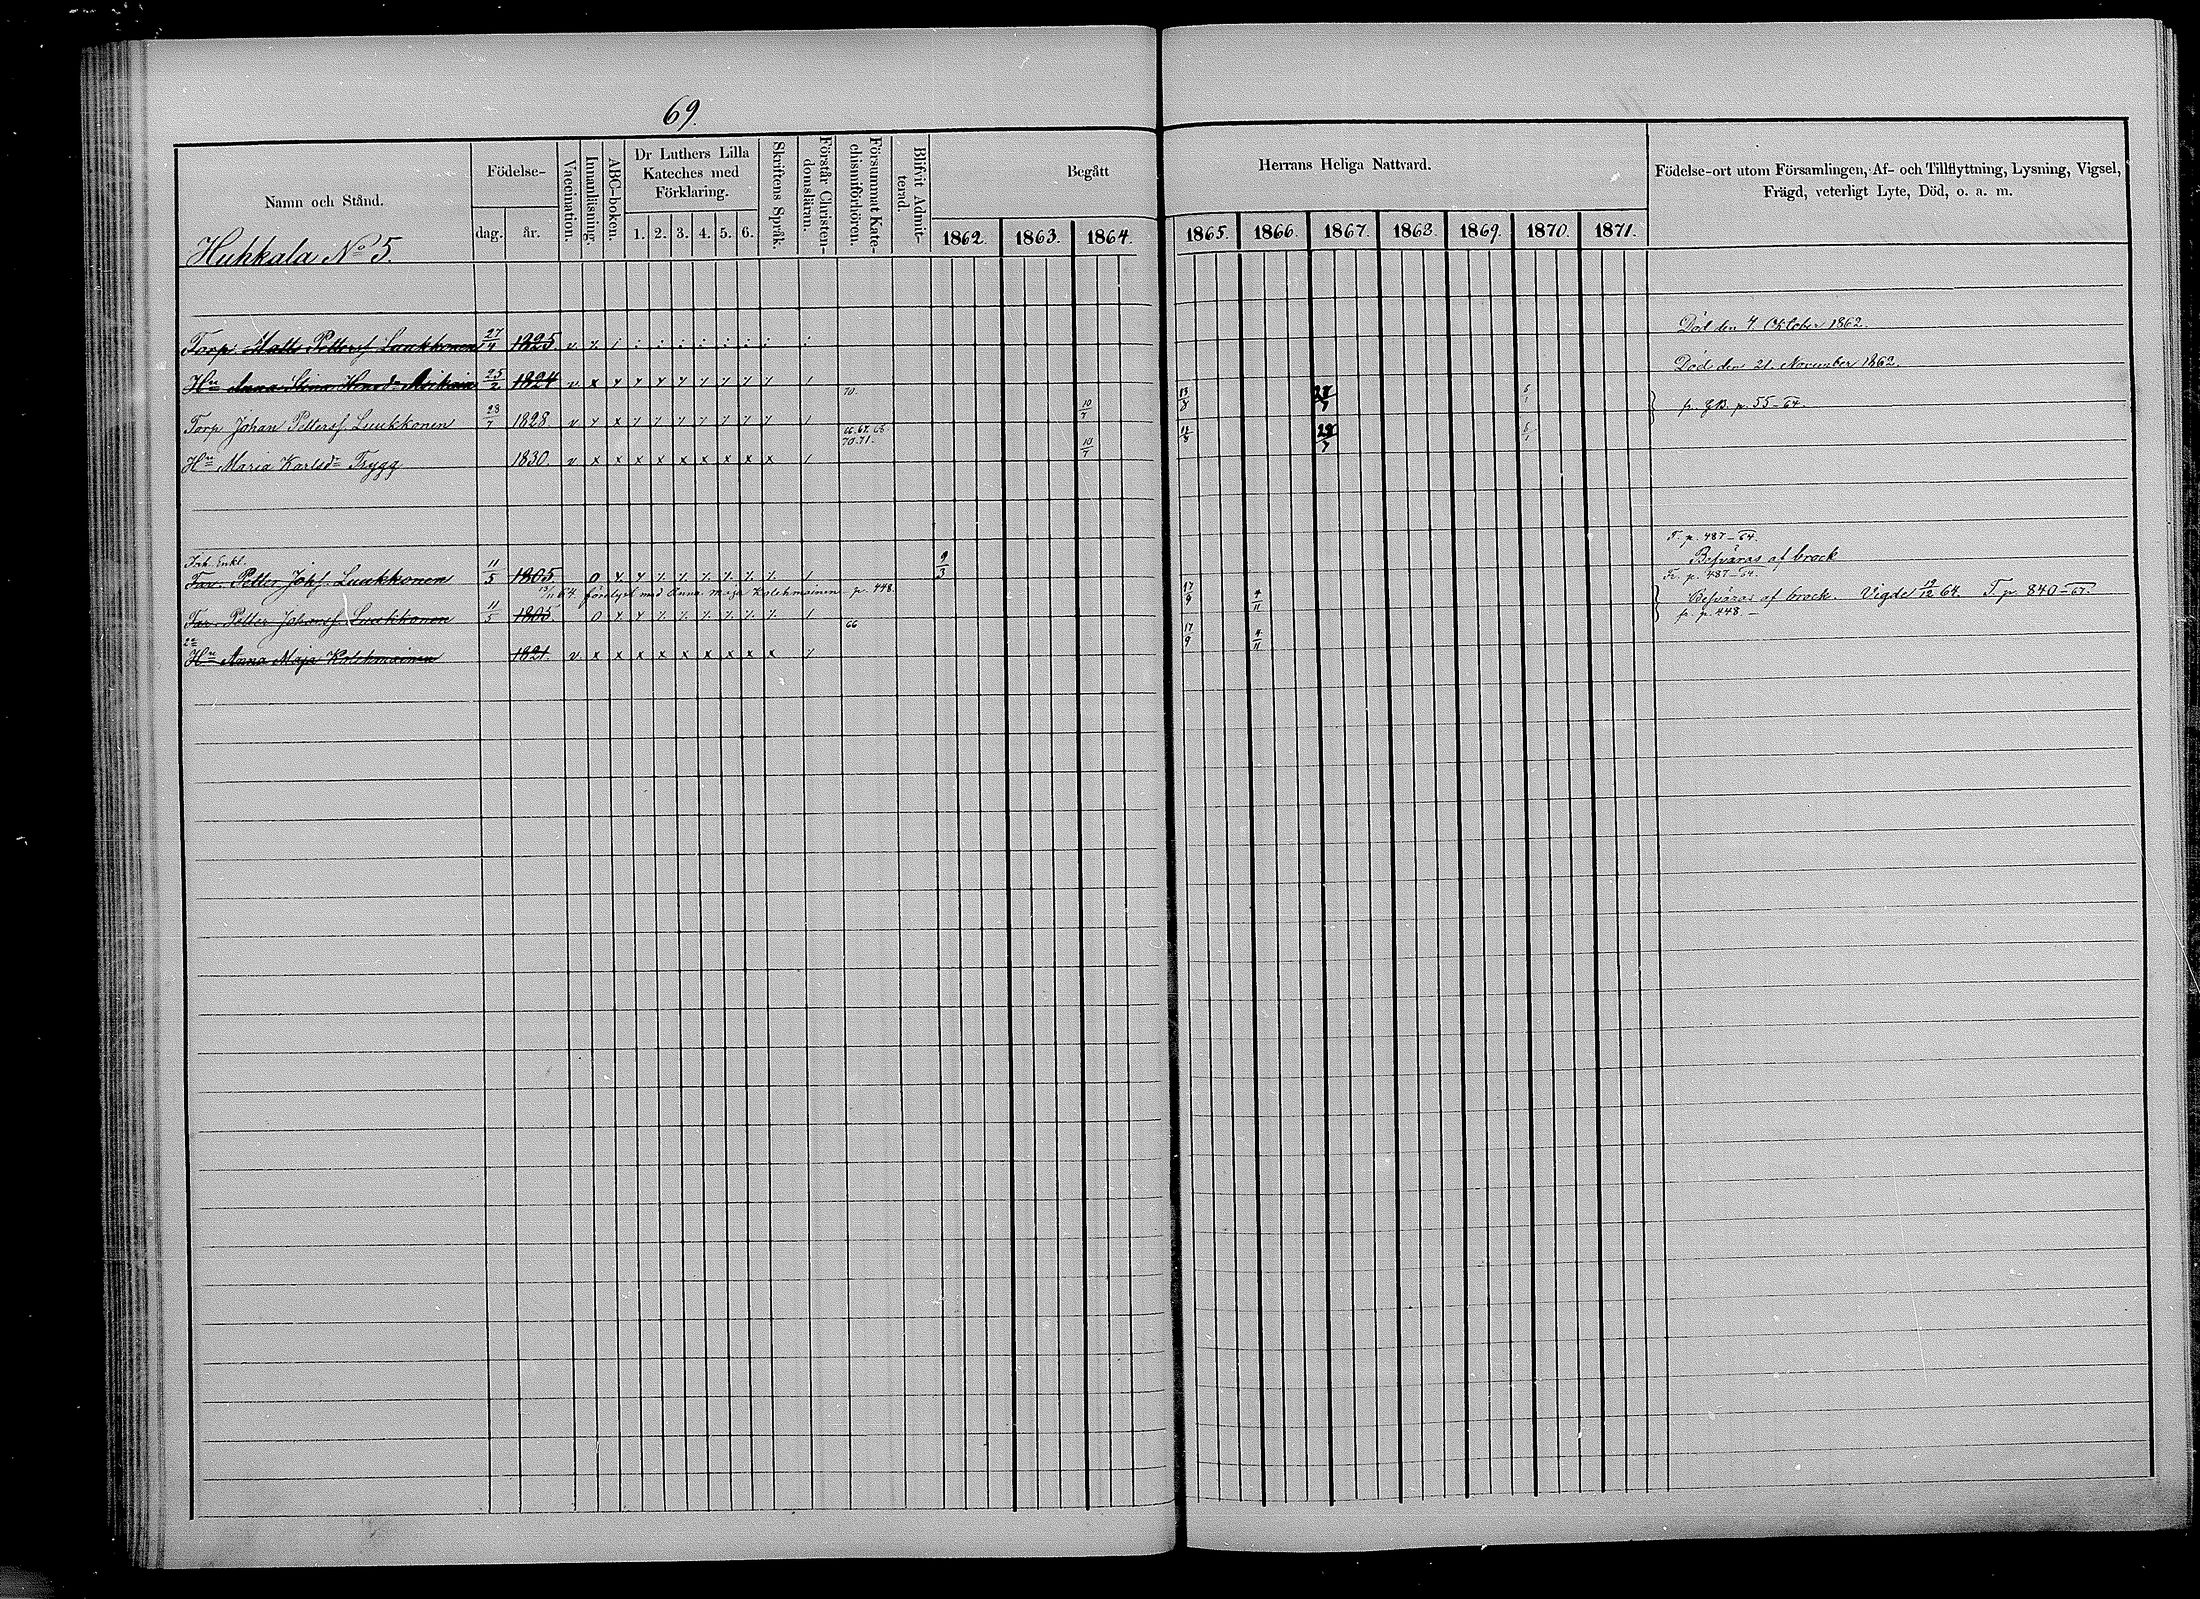 69.
Namn och Stånd.
Födelse-
dag.
år.
Vaccination.
Innanläsning.
ABC-boken.
Dr Luthers Lilla
Kateches med
Förklaring.
1. 2. 3. 4. 5. 6.
Skriftens Språk.
Förstår Christen-
domsläran.
Försummat Kate-
chismiförhören.
Blifvit Admit-
terad.
Begått
Herrans Heliga Nattvard.
1862. 1863. 1864. 1865. 1866. 1867. 1868. 1869. 1870. 1871.
Födelse-ort utom Församlingen, Af- och Tillflyttning, Lysning, Vigsel,
Frägd, veterligt Lyte, Död, o. a. m.
Huhkala No 5.
Torp. Matts Petterss. Luukkonen 27/4 1825 v Död den 4 Oktober 1862.
Hu Anna Stina Hinrsdr 25/2 1824 v x Död den 21. November 1862.
Torp Johan Petterss. Luukkonen 28/7 1828 v 70. 10/7 13/8 28/7 6/1 fr. GB. p. 55-64.
Hu Maria Karlsdr Trygg 1830. v x x x x x x x x x 66. 67. 68 70. 71. 10/7 13/8 28/7 6/1
T. p. 487-64.
Inh. Enkl.
Far. Petter Johss. Luukkonen 11/5 1805 0 9/3 Besväras af brock
13/11 64 förelyst med Anna Maja Kolehmainen p. 448.
Fr. p. 487-64.
Far. Petter Johanss. Luukkonen 11/5 1805 0 66 17/9 4/11 Besväras af brock. Vigde 19/12 64. T. p. 840-67.
fr. p. 448 -
2a
Hu Anna Maja Kolehmainen 1821. v x x x x x x x x x 17/9 4/11